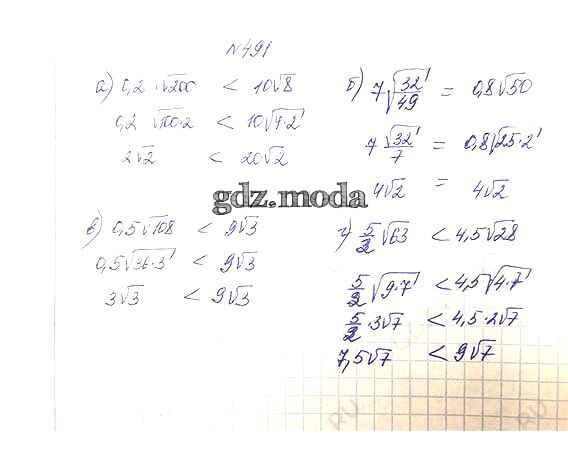 №491
а) 0,2·√200 < 10√8
0,2 √100·2 < 10√4·2
2√2 < 20√2
б) 7√32/49 = 0,8√50
7 √32/7 = 0,8√25·2
4√2 = 4√2
gdz.moda
в) 0,5√108 < 9√3
0,5√36·3 < 9√3
3√3 < 9√3
г) 5/2 √63 < 4,5√28
5/2 √9·7 < 4,5√4·7
5/2 · 3√7 < 4,5·2√7
7,5√7 < 9√7
RU
RU